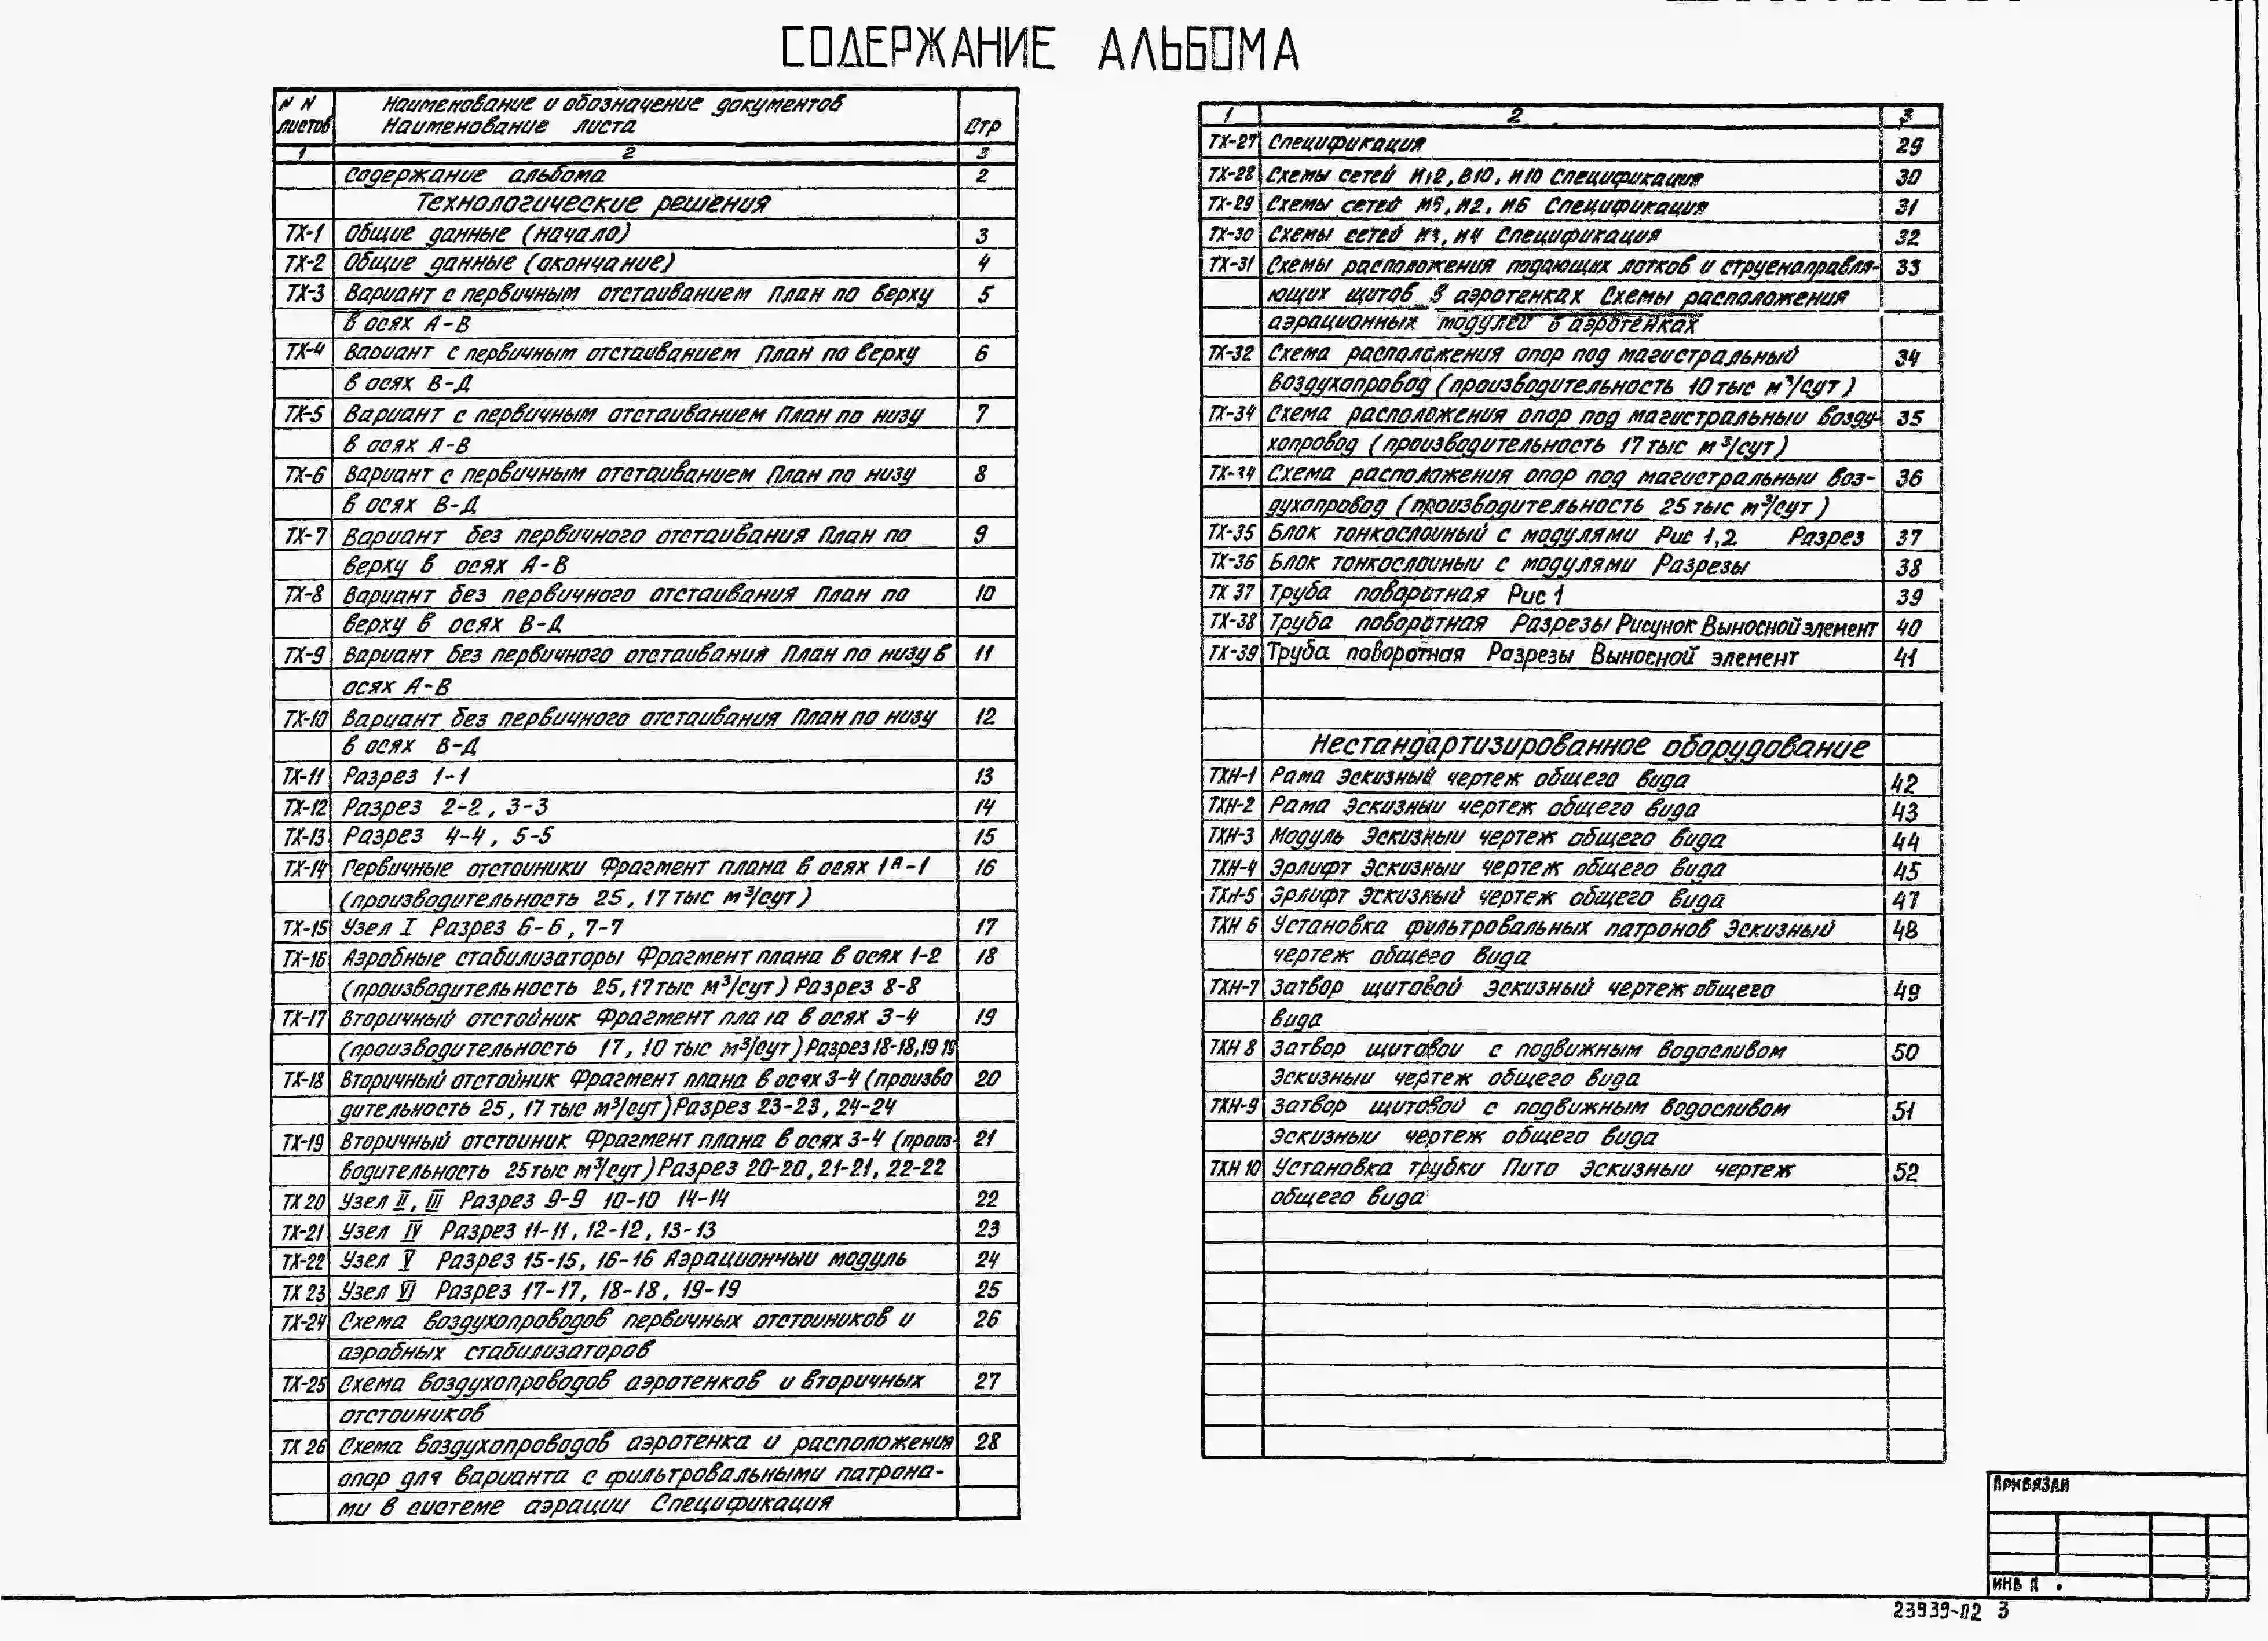 СОДЕРЖАНИЕ АЛЬБОМА
N N листов
Наименование и обозначение документов
Наименование листа
Стр
1 2 3
Содержание альбома 2
Технологические решения
ТХ-1 Общие данные (начало) 3
ТХ-2 Общие данные (окончание) 4
ТХ-3 Вариант с первичным отстаиванием План по верху 5
в осях А-В
ТХ-4 Вариант с первичным отстаиванием План по верху 6
в осях В-Д
ТХ-5 Вариант с первичным отстаиванием План по низу 7
в осях А-В
ТХ-6 Вариант с первичным отстаиванием План по низу 8
в осях В-Д
ТХ-7 Вариант без первичного отстаивания План по 9
верху в осях А-В
ТХ-8 Вариант без первичного отстаивания План по 10
верху в осях В-Д
ТХ-9 Вариант без первичного отстаивания План по низу в 11
осях А-В
ТХ-10 Вариант без первичного отстаивания План по низу 12
в осях В-Д
ТХ-11 Разрез 1-1 13
ТХ-12 Разрез 2-2, 3-3 14
ТХ-13 Разрез 4-4, 5-5 15
ТХ-14 Первичные отстоиники Фрагмент плана в осях 1А-1 16
(производительность 25, 17 тыс м³/сут)
ТХ-15 Узел I Разрез 6-6, 7-7 17
ТХ-16 Аэробные стабилизаторы Фрагмент плана в осях 1-2 18
(производительность 25,17тыс м³/сут) Разрез 8-8
ТХ-17 Вторичный отстойник Фрагмент плана в осях 3-4 19
(производительность 17, 10 тыс м³/сут) Разрез 18-18,19 19
ТХ-18 Вторичный отстойник Фрагмент плана в осях 3-4 (произво 20
дительность 25, 17 тыс м³/сут) Разрез 23-23, 24-24
ТХ-19 Вторичный отстоиник Фрагмент плана в осях 3-4 (произ- 21
водительность 25тыс м³/сут) Разрез 20-20, 21-21, 22-22
ТХ 20 Узел II, III Разрез 9-9 10-10 14-14 22
ТХ-21 Узел IV Разрез 11-11, 12-12, 13-13 23
ТХ-22 Узел V Разрез 15-15, 16-16 Аэрационныи модуль 24
ТХ 23 Узел VI Разрез 17-17, 18-18, 19-19 25
ТХ-24 Схема воздухопроводов первичных отстоиников и 26
аэробных стабилизаторов
ТХ-25 Схема воздухопроводов аэротенков и вторичных 27
отстоиников
ТХ 26 Схема воздухопроводов аэротенка и расположения 28
опор для варианта с фильтровальными патрона-
ми в системе аэрации Спецификация
1 2 3
ТХ-27 Спецификация 29
ТХ-28 Схемы сетей И12, В10, И10 Спецификация 30
ТХ-29 Схемы сетей И2, И6 Спецификация 31
ТХ-30 Схемы сетей И4 Спецификация 32
ТХ-31 Схемы расположения подающих лотков и струенаправля- 33
ющих щитов в аэротенках Схемы расположения
аэрационных модулей в аэротенках
ТХ-32 Схема расположения опор под магистральный 34
воздухопровод (производительность 10 тыс м³/сут)
ТХ-34 Схема расположения опор под магистральныи возду- 35
хопровод (производительность 17 тыс м³/сут)
ТХ-34 Схема расположения опор под магистральныи воз- 36
духопровод (производительность 25 тыс м³/сут)
ТХ-35 Блок тонкослоиный с модулями Рис 1,2 Разрез 37
ТХ-36 Блок тонкослоиныи с модулями Разрезы 38
ТХ 37 Труба поворотная Рис 1 39
ТХ-38 Труба поворотная Разрезы Рисунок Выносной элемент 40
ТХ-39 Труба поворотная Разрезы Выносной элемент 41
Нестандартизированное оборудование
ТХН-1 Рама Эскизный чертеж общего вида 42
ТХН-2 Рама Эскизныи чертеж общего вида 43
ТХН-3 Модуль Эскизныи чертеж общего вида 44
ТХН-4 Эрлифт Эскизныи чертеж общего вида 45
ТХН-5 Эрлифт Эскизный чертеж общего вида 47
ТХН 6 Установка фильтровальных патронов Эскизный 48
чертеж общего вида
ТХН-7 Затвор щитовой Эскизный чертеж общего 49
вида
ТХН 8 Затвор щитовои с подвижным водосливом 50
Эскизныи чертеж общего вида
ТХН-9 Затвор щитовой с подвижным водосливом 51
Эскизныи чертеж общего вида
ТХН 10 Установка трубки Пито Эскизныи чертеж 52
общего вида
ПРИВЯЗАН
ИНВ N
23939-02 3